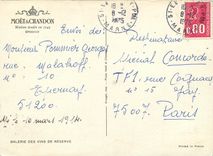 MOËT & CHANDON
Maison fondée en 1743
EPERNAY
Envoi de:
Monsieur Pommier Georges
rue Malakoff
N° 10
Epernay
51200
le 10 mars 1975
GALERIE DES VINS DE RÉSERVE
Destinataire
Michel
TF1. rue Cognacq
Jay 15
75007.
Paris
0.80
Printed in France